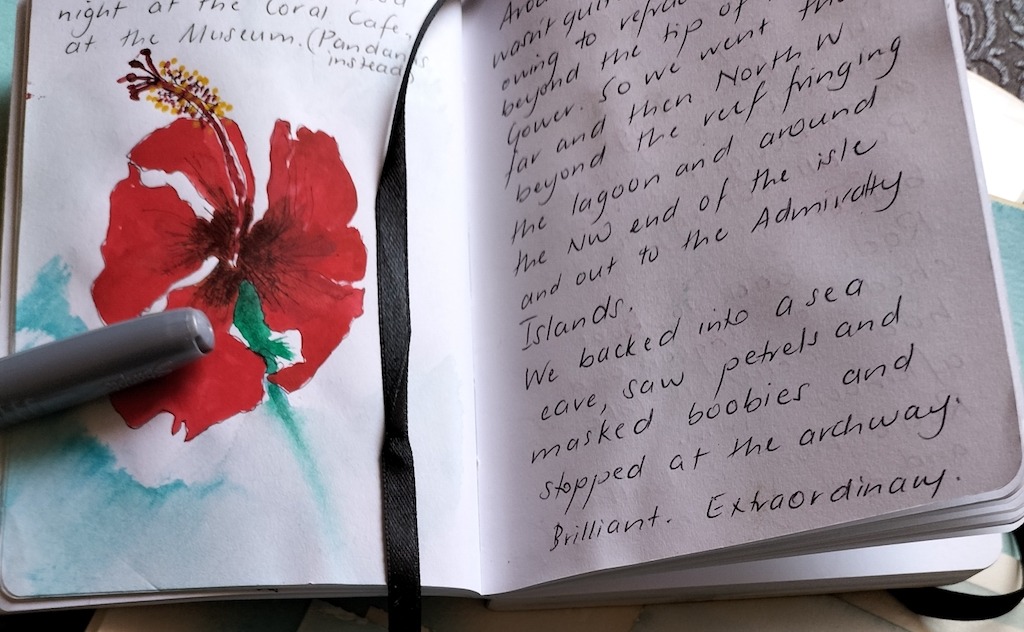 night at the Coral Cafe,
at the Museum. (Pandanus
instead)
wasn't quit
owing to refra
beyond the tip of
Gower. So we went the
far and then North W
beyond the reef fringing
the lagoon and around
the NW end of the isle
and out to the Admiralty
Islands.
We backed into a sea
cave, saw petrels and
masked boobies and
stopped at the archway.
Brilliant. Extraordinary.